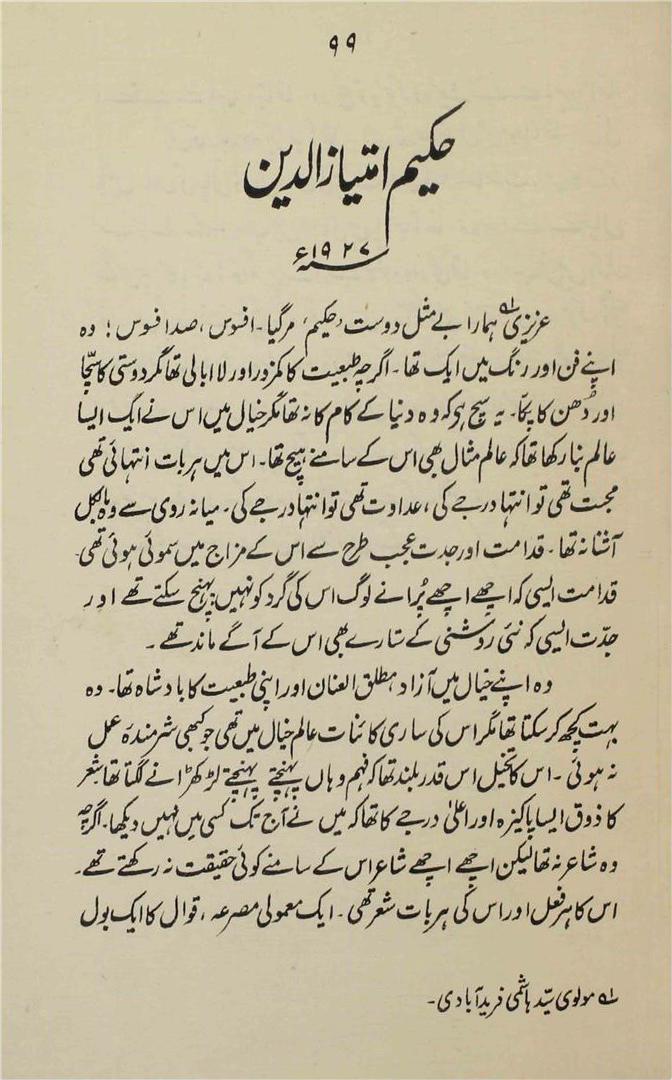 ۹۹
حکیم امتیاز الدین
۱۹۲۷ء
عزیزی ۱؎ ہمارا بے مثل دوست ’حکیم‘ مر گیا۔ افسوس، صد افسوس! وہ
اپنے فن اور رنگ میں ایک تھا۔ اگرچہ طبیعت کا کمزور اور لا ابالی تھا مگر دوستی کا سچّا
اور دُھن کا پکّا۔ یہ سچ ہو کہ وہ دنیا کے کام کا نہ تھا مگر خیال میں اس نے ایک ایسا
عالم بنا رکھا تھا کہ عالم مثال بھی اس کے سامنے ہیچ تھا۔ اس میں ہر بات انتہائی تھی
محبت تھی تو انتہا درجے کی، عداوت تھی تو انتہا درجے کی۔ میانہ روی سے وہ بالکل
آشنا نہ تھا۔ قدامت اور جدت عجب طرح سے اس کے مزاج میں سموئی ہوئی تھی۔
قدامت ایسی کہ اچھے اچھے پُرانے لوگ اس کی گرد کو نہیں پہنچ سکتے تھے اور
جدّت ایسی کہ نئی روشنی کے ستارے بھی اس کے آگے ماند تھے۔
وہ اپنے خیال میں آزاد مطلق العنان اور اپنی طبیعت کا بادشاہ تھا۔ وہ
بہت کچھ کر سکتا تھا مگر اس کی ساری کائنات عالم خیال میں تھی جو کبھی شرمندہَ عمل
نہ ہوئی۔ اس کا تخیل اس قدر بلند تھا کہ فہم وہاں پہنچتے پہنچتے لڑکھڑانے لگتا تھا شعر
کا ذوق ایسا پاکیزہ اور اعلیٰ درجے کا تھا کہ میں نے آج تک کسی میں نہیں دیکھا۔ اگرچہ
وہ شاعر نہ تھا لیکن اچھے اچھے شاعر اس کے سامنے کوئی حقیقت نہ رکھتے تھے۔
اس کا ہر فعل اور اس کی ہر بات شعر تھی۔ ایک معمولی مصرعہ، قوال کا ایک بول
۱؎ مولوی سیّد ہاشمی فریدآبادی۔